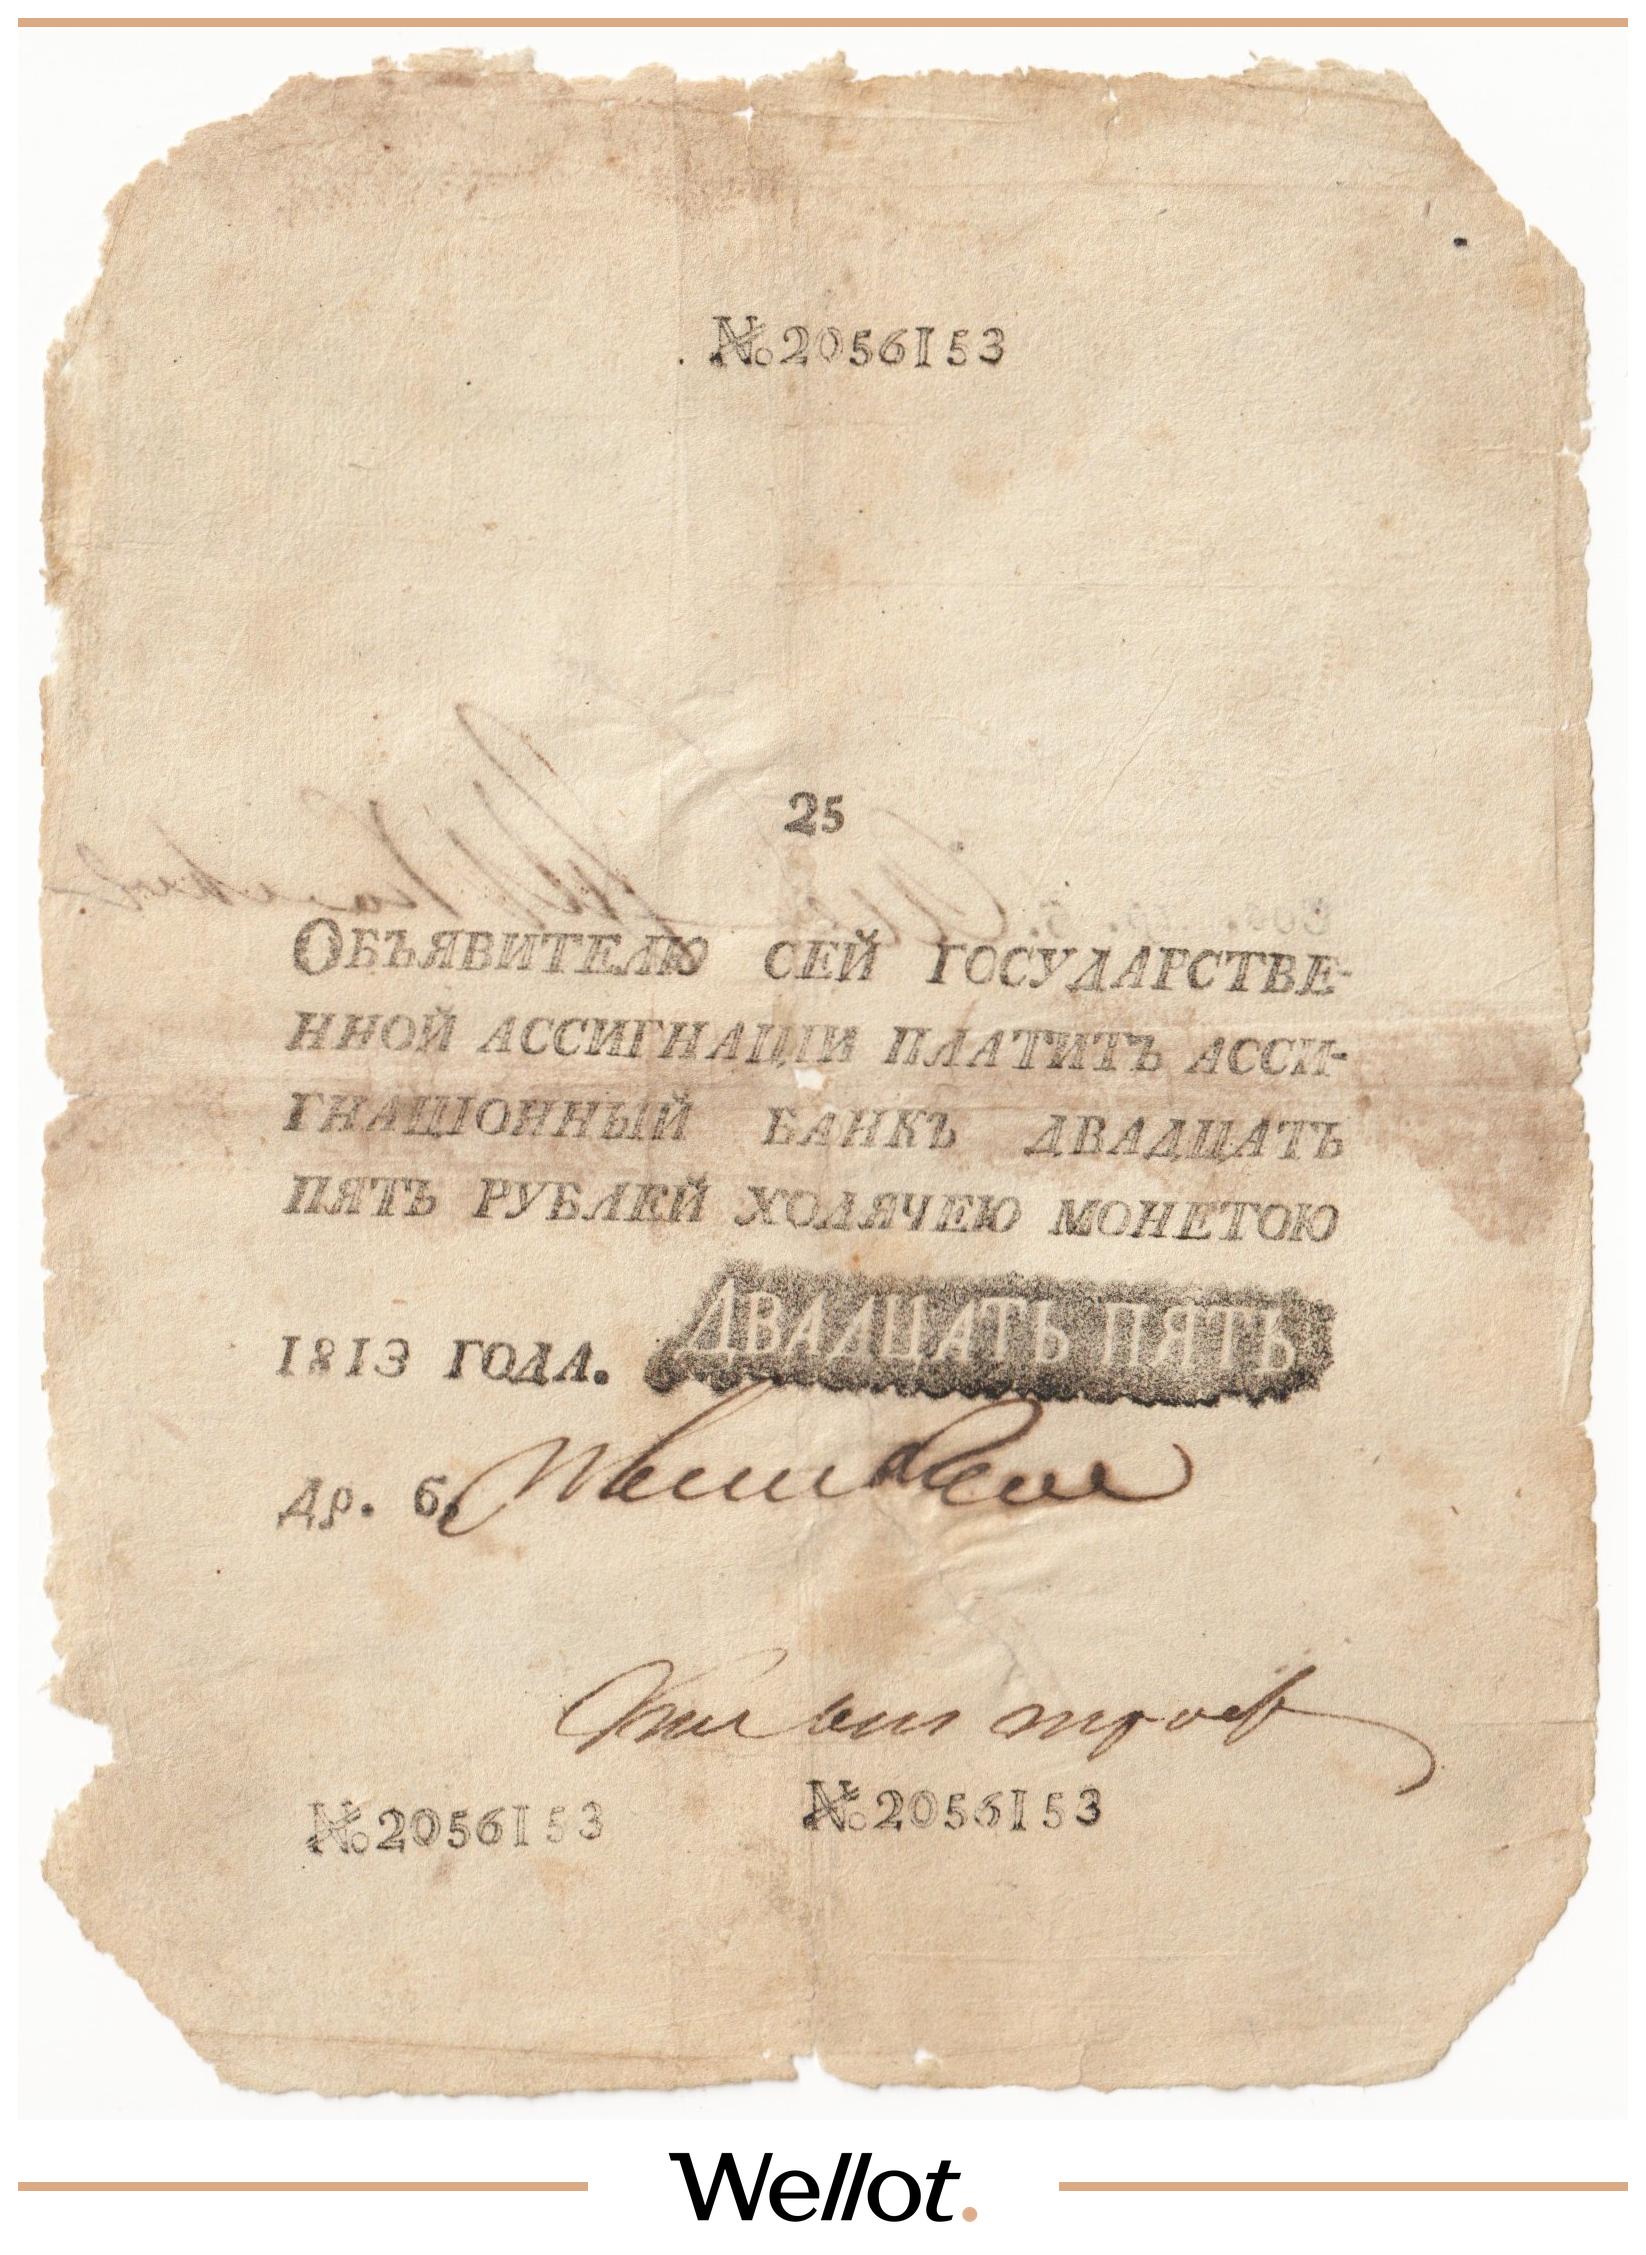 № 2056153
25
ОБЪЯВИТЕЛЮ СЕЙ ГОСУДАРСТВЕ-
ННОЙ АССИГНАЦІИ ПЛАТИТЪ АССИ-
ГНАЦІОННЫЙ БАНКЪ ДВАДЦАТЬ
ПЯТЬ РУБЛЕЙ ХОДЯЧЕЮ МОНЕТОЮ
1813 ГОДА. ДВАДЦАТЬ ПЯТЬ
др. б.
№ 2056153 № 2056153
Wellot.